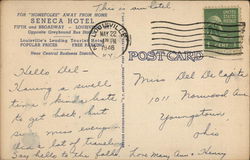 This is our hotel
FOR "HOMEFOLKS" AWAY FROM HOME
SENECA HOTEL
5TH and BROADWAY - LOUISVILLE
Opposite Greyhound Bus
Louisville's Leading Tourist Hotel
POPULAR PRICES FREE PARKING
Near Central Business District
LOUISVILLE
MAY 22
PM
1946
KY.
POST CARD
Hello Del -
Having a swell
time. Kinda hate
to get back, but
miss everyone
Did a lot of traveling
Say hello to the folks
Love Mary Ann & Henry
Miss Del De Capito
1011 Norwood Ave
Youngstown,
Ohio